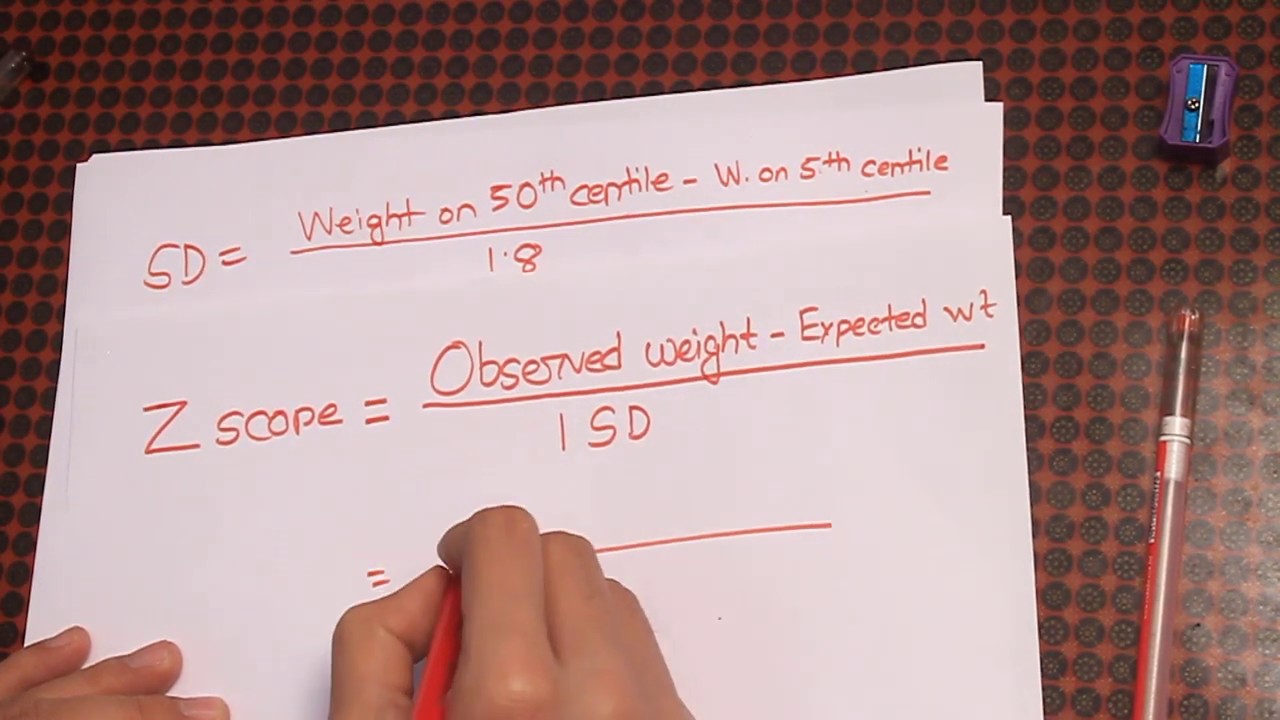 SD = Weight on 50th centile - W. on 5th centile
1.8
Z scope = Observed weight - Expected wt
1 SD
=